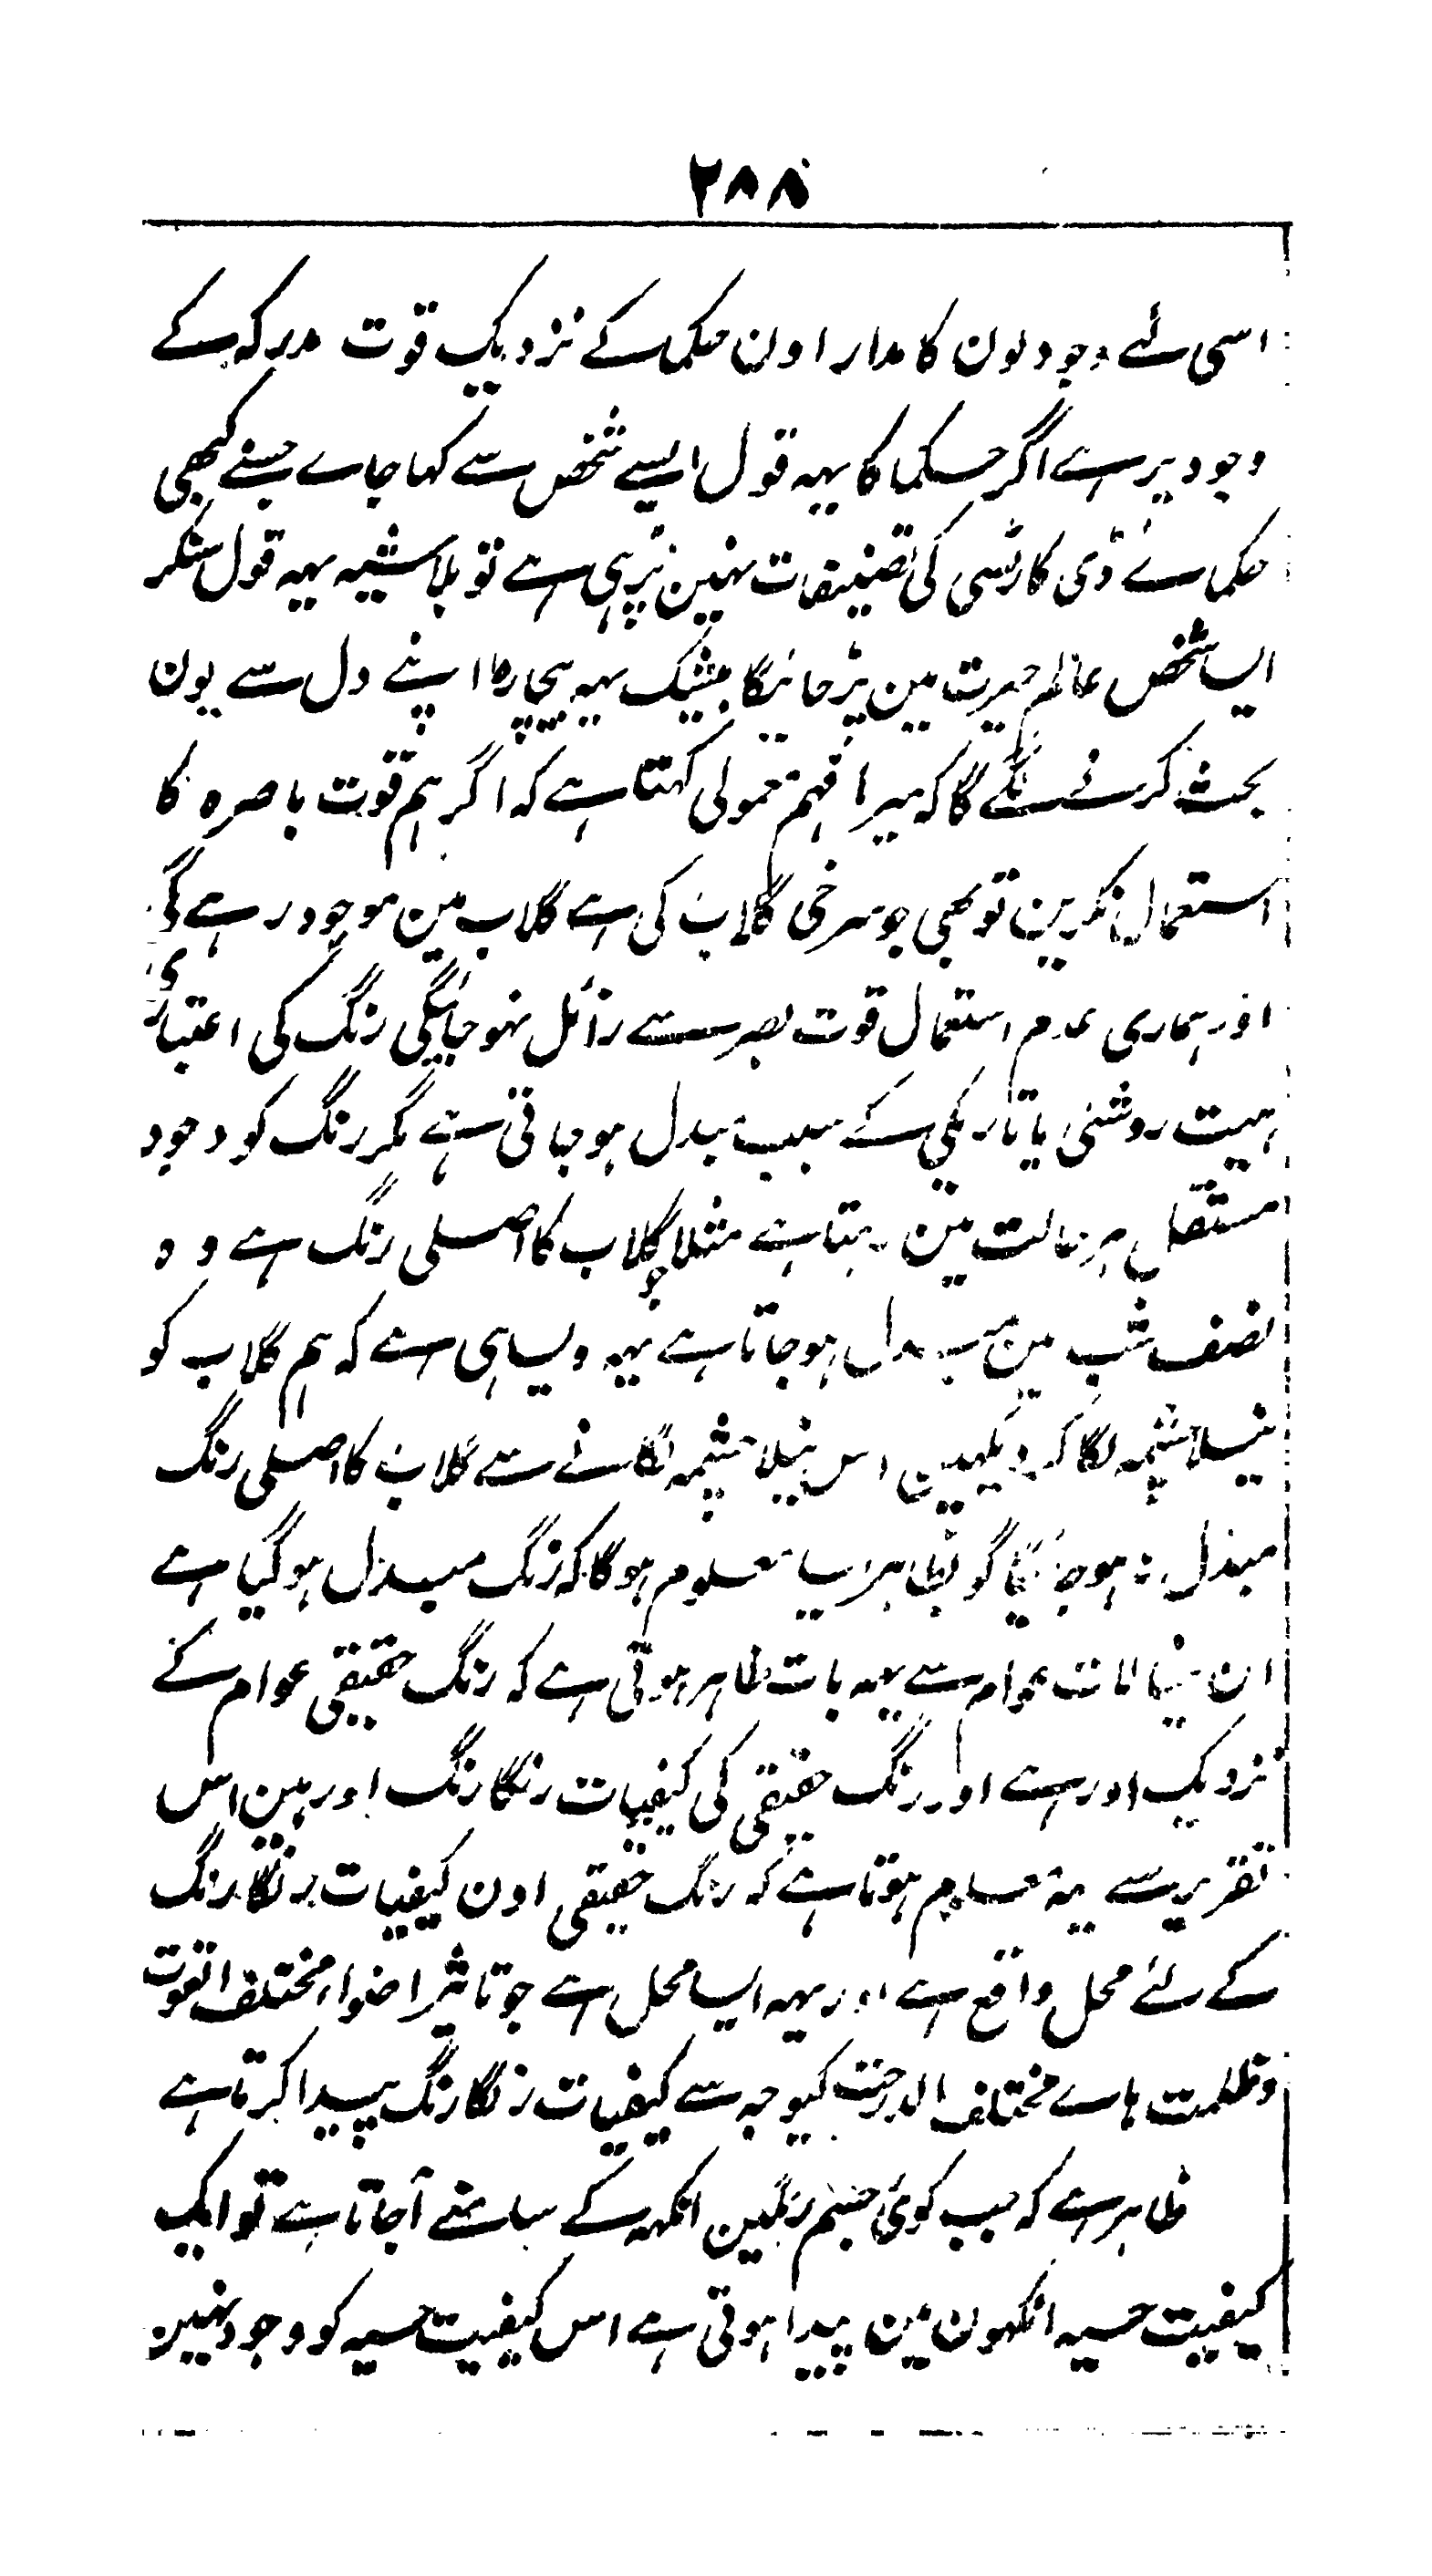 ۲۸۸
اسی لئے وجود لون کا مدار اون حکما کے نزدیک قوت مدرکہ کے
وجود پر ہے اگر حکما کا یہہ قول ایسے شخص سے کہا جاے جسنے کبھی
حکماے ڈی کارٹسی کی تصنیفات نہین پڑہی ہے تو بلا شبہہ یہہ قول سنکر
ایسا شخص عالم حیرت مین پڑ جائیگا بیشک یہہ بیچارہ اپنے دل سے یون
بحث کرنے لگے گا کہ میرا فہم معمولی کہتا ہے کہ اگر ہم قوت باصرہ کا
استعمال نکرین تو بھی جو سرخی گلاب کی ہے گلاب مین موجود رہے گی
اور ہماری عدم استعمال قوت بصر سے زائل نہو جائیگی رنگ کی اعتباری
ہیت روشنی یا تاریکی کے سبب مبدل ہو جاتی ہے مگر رنگ کو وجود
مستقل ہر حالت مین رہتا ہے مثلا جو گلاب کا اصلی رنگ ہے وہ
نصف شب مین مبدل ہو جاتا ہے یہہ ویسا ہی ہے کہ ہم گلاب کو
نیلا چشمہ لگا کر دیکہین اس نیلا چشمہ لگانے سے گلاب کا اصلی رنگ
مبدل نہ ہو جائیگا گو بظاہر ایسا معلوم ہوگا کہ رنگ مبدل ہو گیا ہے
ان خیالات عوام سے یہہ بات ظاہر ہوتی ہے کہ رنگ حقیقی عوام کے
نزدیک اور ہے اور رنگ حقیقی کی کیفیات رنگا رنگ اور ہین اس
تقریر سے یہ معلوم ہوتا ہے کہ رنگ حقیقی اون کیفیات رنگا رنگ
کے لئے محل واقع ہے اور یہہ ایسا محل ہے جو تاثیر اضواء مختلف القوت
وظلمت ہاے مختلف الدرجت کیوجہ سے کیفیات رنگا رنگ پیدا کرتا ہے
ظاہر ہے کہ جب کوئی جسم رنگین انکہہ کے سامنے آجاتا ہے تو ایک
کیفیت حسیہ انکہون مین پیدا ہوتی ہے اس کیفیت حسیہ کو وجود نہین